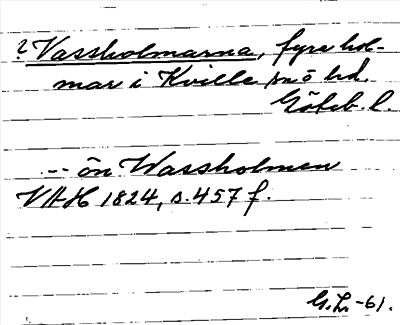 ? Vassholmarna, fyra hol-
mar i Kville sn o hd.
Göteb. l.
-- ön Wassholmen
VAH 1824, s. 457 f.
G. Lr -61.